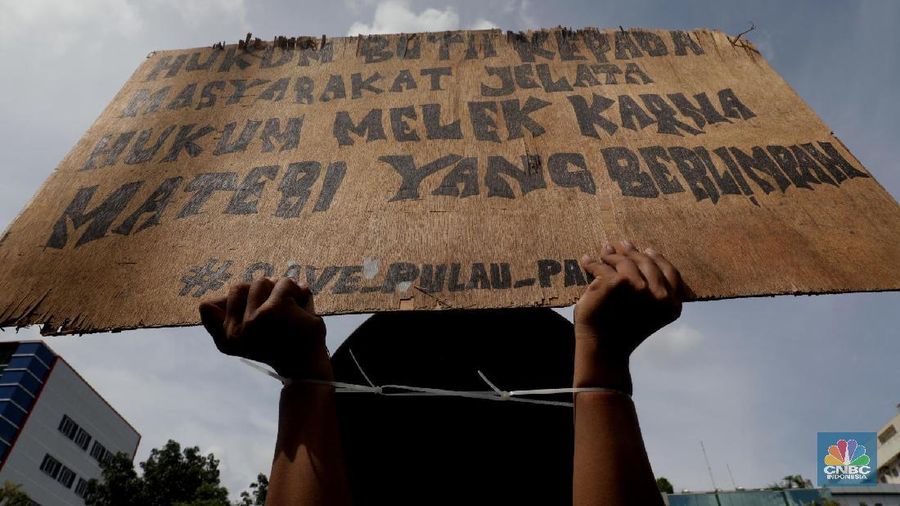 HUKUM BUTA KEPADA
MASYARAKAT JELATA
HUKUM MELEK KARNA
MATERI YANG BERLIMPAH
#SAVE_PULAU_PA
CNBC
INDONESIA